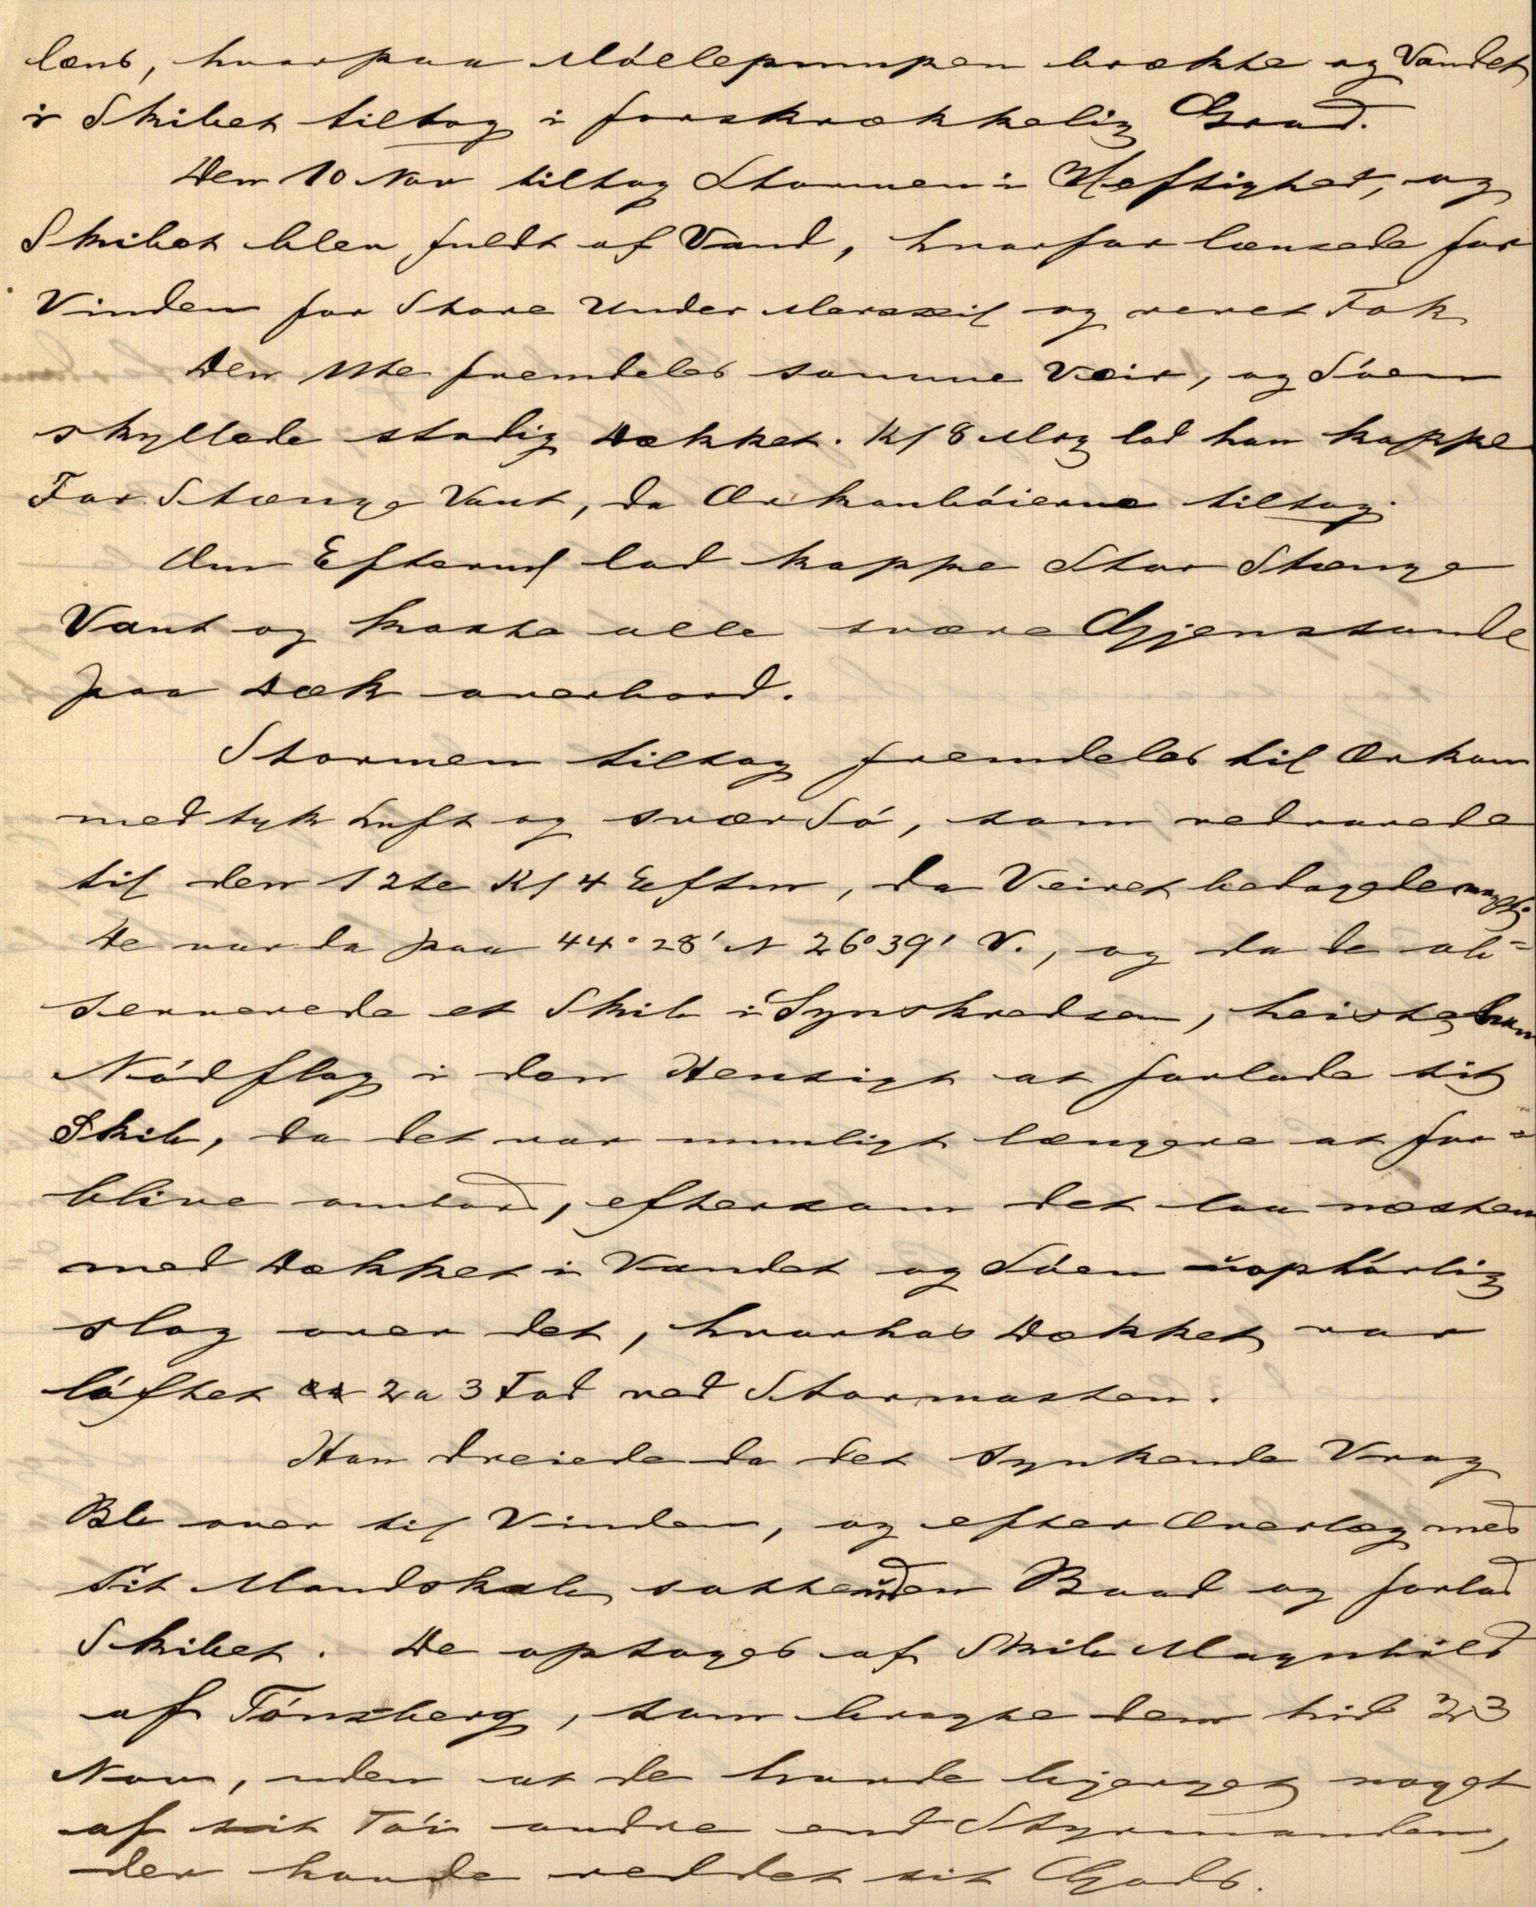 læns, hvorpaa Møllepumpen brækte og Vandet
i Skibet tiltog i forskrækkelig Grad.
Den 10 Nov tiltog Stormen i Heftighed, og
Skibet blev fuldt af Vand, hvorfor lænsede for
Vinden for Store Under Mersseil og revet Fok
Den 11te fremdeles samme Veir, og Søen
skyllede stadig Dækket. Kl 8 Mrg lod han kappe
For Stænge Vant, da Orkanbøierne tiltog.
Om Efterm lod kappe Stor Stænge
Vant og kaste alle svære Gjenstande
paa Dæk overbord.
Stormen tiltog fremdeles til Orkan
med tyk Luft og svær Sø, som vedvarede
til den 12te Kl 4 Eftm, da Veiret bedagede
De var da paa 44° 28' N 26° 39' V., og da de ob=
serverede et Skib i Synskredsen, heiste han
Nødflag i den Hensigt at forlade sit
Skib, da det var umuligt længere at for=
blive ombord, eftersom det laa næsten
med Dækket i Vandet og Søen uophørlig
slog over det, hvorhos Dækket var
løftet 2 a 3 Fod ved Stormasten.
Han dreiede da det synkende Vrag
Bb over til Vinden, og efter Overlæg med
sit Mandskab satte den Baad og forlod
Skibet. De optoges af Skib Magnhild
af Tønsberg, som bragte dem hid 23
Nov, uden at de havde bjerget noget
af sit Tøi andre end Styrmanden,
der havde reddet sit Gods.